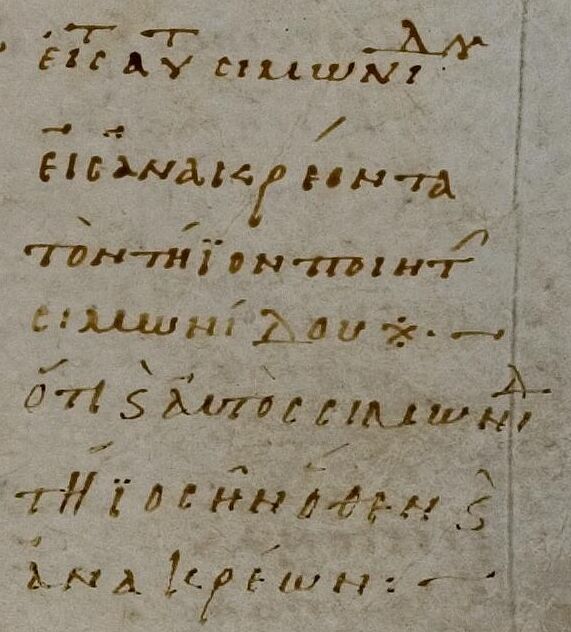 εἰς τ αυτ σιμωνιδου
εἰς ἀνακρέοντα
τὸν τήϊον ποιητ
σιμωνίδου ※· —
ὅτι ϛ ἀυτὸς σιμωνιδ
τήϊος ἦν ὅθεν ϛ
ἀνακρέων: —